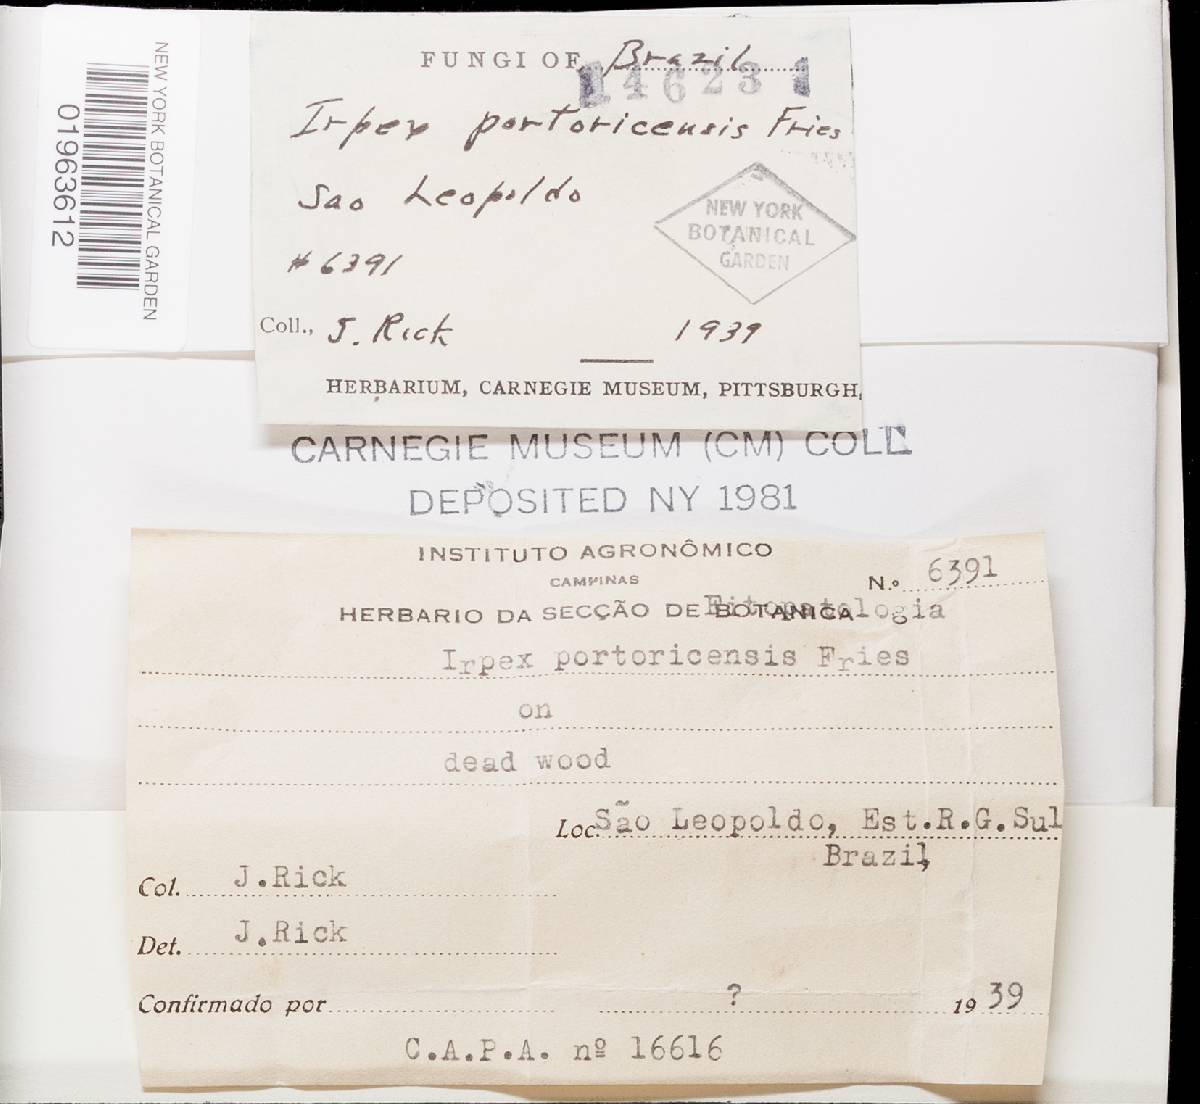 NEW YORK BOTANICAL GARDEN
01963612
FUNGI OF Brazil
146231
Irpex portoricensis Fries
Sao Leopoldo
NEW YORK
BOTANICAL
GARDEN
#6391
Coll., J. Rick 1939
HERBARIUM, CARNEGIE MUSEUM, PITTSBURGH,
CARNEGIE MUSEUM (CM) COLL
DEPOSITED NY 1981
INSTITUTO AGRONÔMICO
CAMPINAS
N.º 6391
HERBARIO DA SECÇÃO DE BOTANICA Fitopatologia
Irpex portoricensis Fries
on
dead wood
Loc. São Leopoldo, Est.R.G.Sul
Brazil,
Col. J.Rick
Det. J.Rick
Confirmado por ? 1939
C.A.P.A. nº 16616